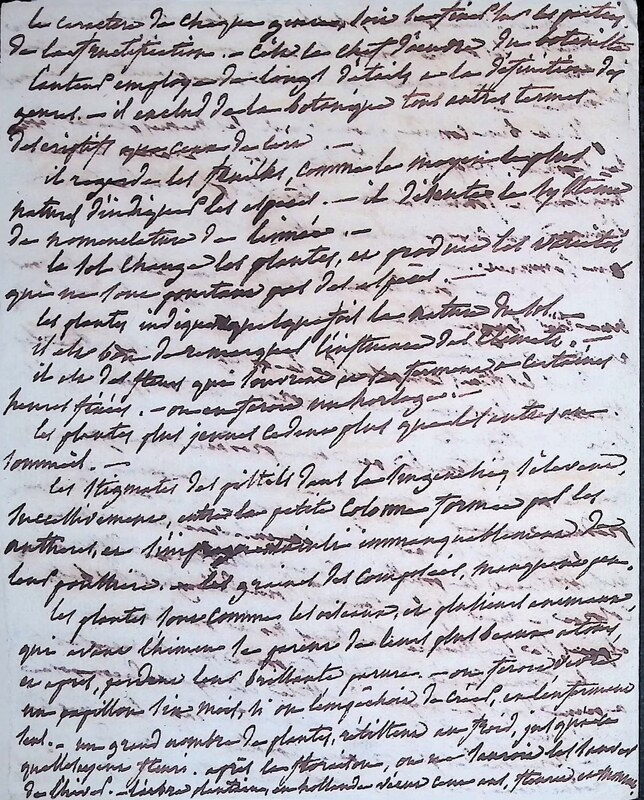 le caractere de chaque genre, soit de tirer les parties
de la fructification. - c'est le chef d'oeuvre du botaniste
l'auteur employe de longs détails a la définition des
genres. - il exclud de la botanique tous autres termes
descriptifs que ceux de l'art
il regarde les feuilles, comme le moyen le plus
naturel d'indiquer les espèces. - il le système
de nomenclature de linnée. -
le sol change les plantes, et produit les variétés
qui ne sont pourtant pas des espèces. -
les plantes indiquent quelque fois la nature du sol. -
il est bon de remarquer l'influence des climats. -
il est des fleurs qui s'ouvrent et se ferment a certaines
heures fixes. - on en feroit un horloge. -
les plantes plus jeunes cedent plus que les autres au
sommeil. -
les stigmates des pistils dans la Singenesie, s'élevent
successivement, entre la petite colonne formée par les
antheres, et immanquablement de
leur poussière. - les graines des composées, manquent peu.
les plantes sont comme les oiseaux, et plusieurs animaux,
qui avant l'himen se parent de leurs plus beaux atours,
et après, perdent leur brillante parure. - on feroit vivre
un papillon six mois, si on l'empêchoit de créer, en l'enfermant
seul. - un grand nombre de plantes, résistent au froid, jusqu'à ce
qu'elles ayent fleuri. après la floraison, on ne sauroit les sauver
de l'hiver. - en hollande cent ans,